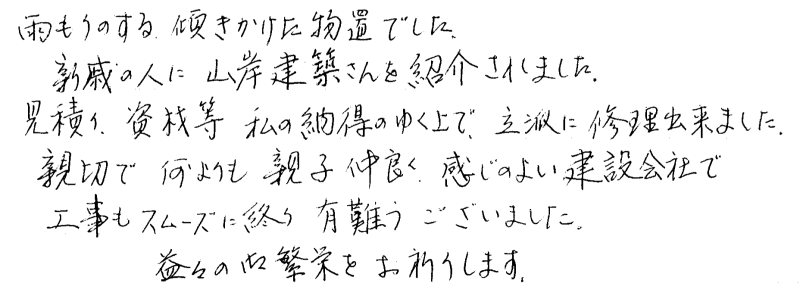 雨もりのする、傾きかけた物置でした。
親戚の人に山岸建築さんを紹介されました。
見積り、資材等 私の納得のゆく上で、立派に修理出来ました。
親切で何よりも親子仲良く、感じのよい建設会社で
工事もスムーズに終り有難うございました。
益々の御繁栄をお祈りします。